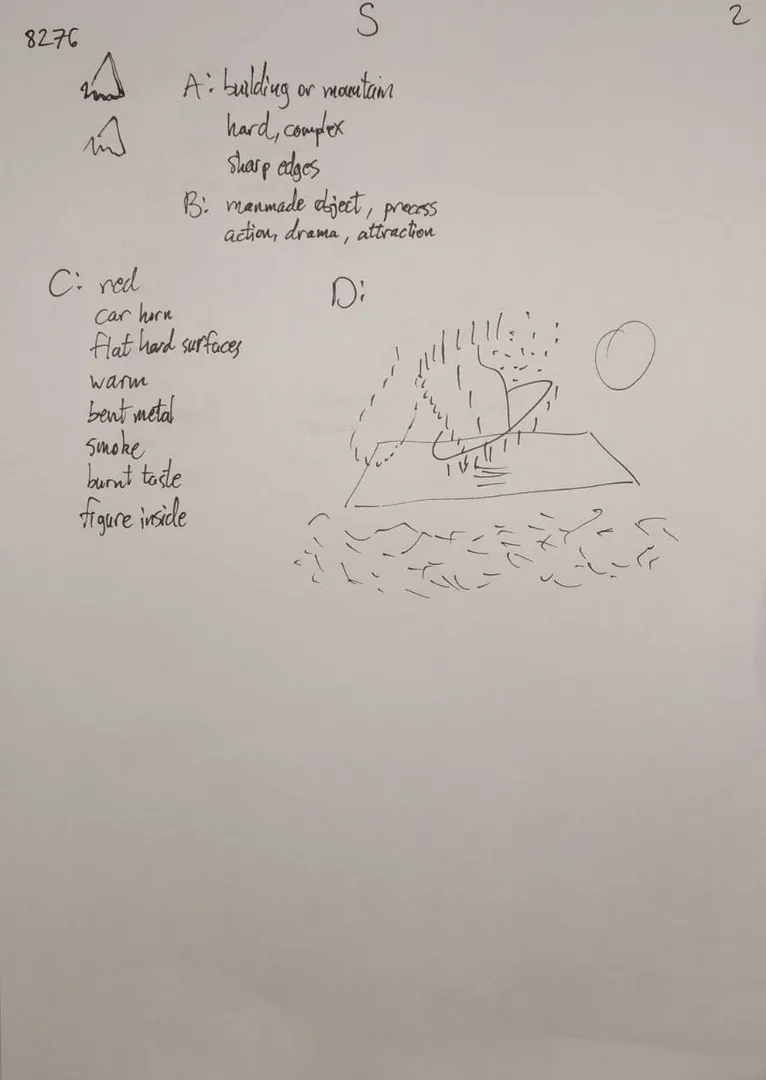 S
2
8276
A: building or mountain
hard, complex
sharp edges
B: manmade object, process
action, drama, attraction
C: red
car horn
flat hard surfaces
warm
bent metal
smoke
burnt taste
figure inside
D: